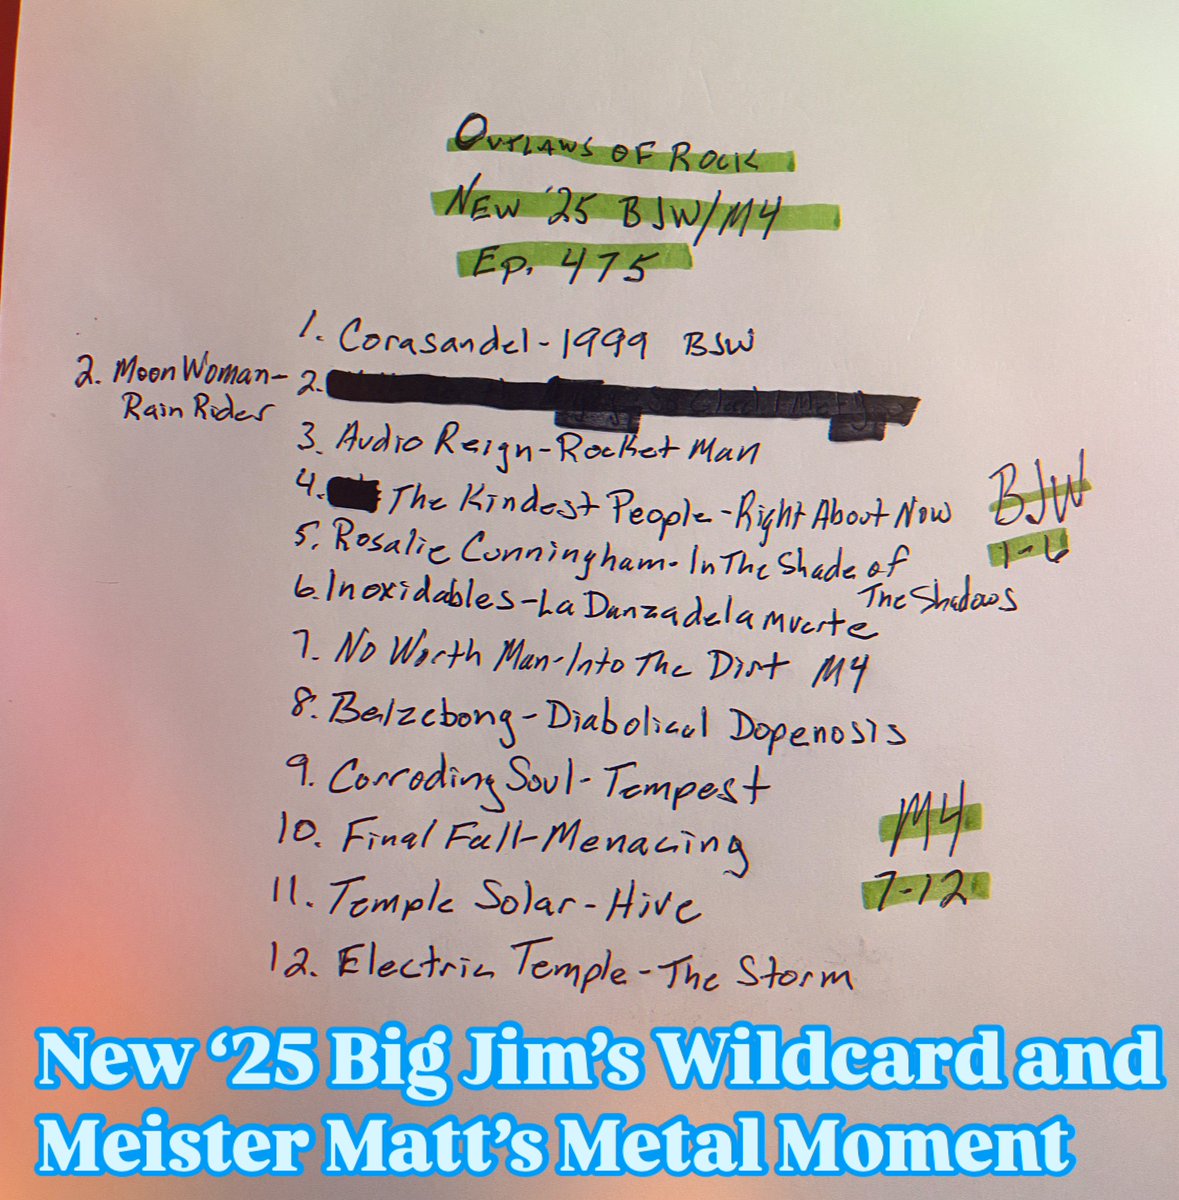 OUTLAWS OF ROCK
NEW '25 BJW/M4
EP. 475
1. Corasandel-1999 BJW
2. Moon Woman-
Rain Rider
2.
3. Audio Reign-Rocket Man
4. The Kindest People-Right About Now
5. Rosalie Cunningham-In The Shade of
The Shadows
6. Inoxidables-La Danza de la muerte
BJW
1-6
7. No Worth Man-Into The Dirt M4
8. Belzebong-Diabolical Dopenosis
9. Corroding Soul-Tempest
10. Final Fall-Menacing
11. Temple Solar-Hive
12. Electric Temple-The Storm
M4
7-12
New ‘25 Big Jim’s Wildcard and
Meister Matt’s Metal Moment